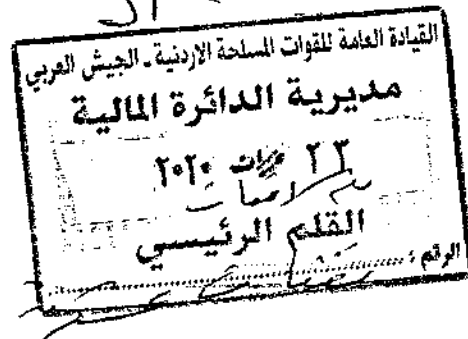 القيادة العامة للقوات المسلحة الاردنية - الجيش العربي
مديرية الدائرة المالية
٢٣ ٢٠٢٠
القلم الرئيسي
الرقم :